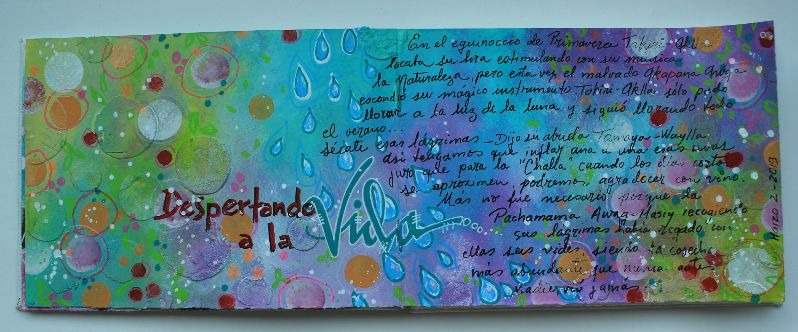 Despertando
a la
Vida
En el equinoccio de Primavera Takiri-Aklla
tocaba su lira estimulando con su música
la Naturaleza, pero esta vez el malvado
escondió su mágico instrumento. Takiri-Aklla solo pudo
llorar a la luz de la luna y siguió llorando todo
el verano...
sécate esas lágrimas - Dijo su abuela Tamaya-Waylla
así tengamos que inflar una a una esas uvas
juro que para la "Challa" cuando los días cortos
se aproximen, podremos agradecer con vino.
Mas no fue necesario porque la
Pachamama recogiendo
sus lágrimas había regado con
ellas sus vides siendo la cosecha
mas abundante que nunca
jamás
Marzo 2-2013